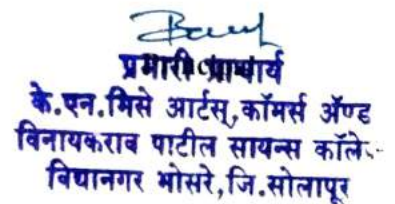 प्रभारी प्राचार्य
के.एन.भिसे आर्टस्,कॉमर्स ॲण्ड
विनायकराव पाटील सायन्स कॉले
विद्यानगर भोसरे,जि.सोलापूर